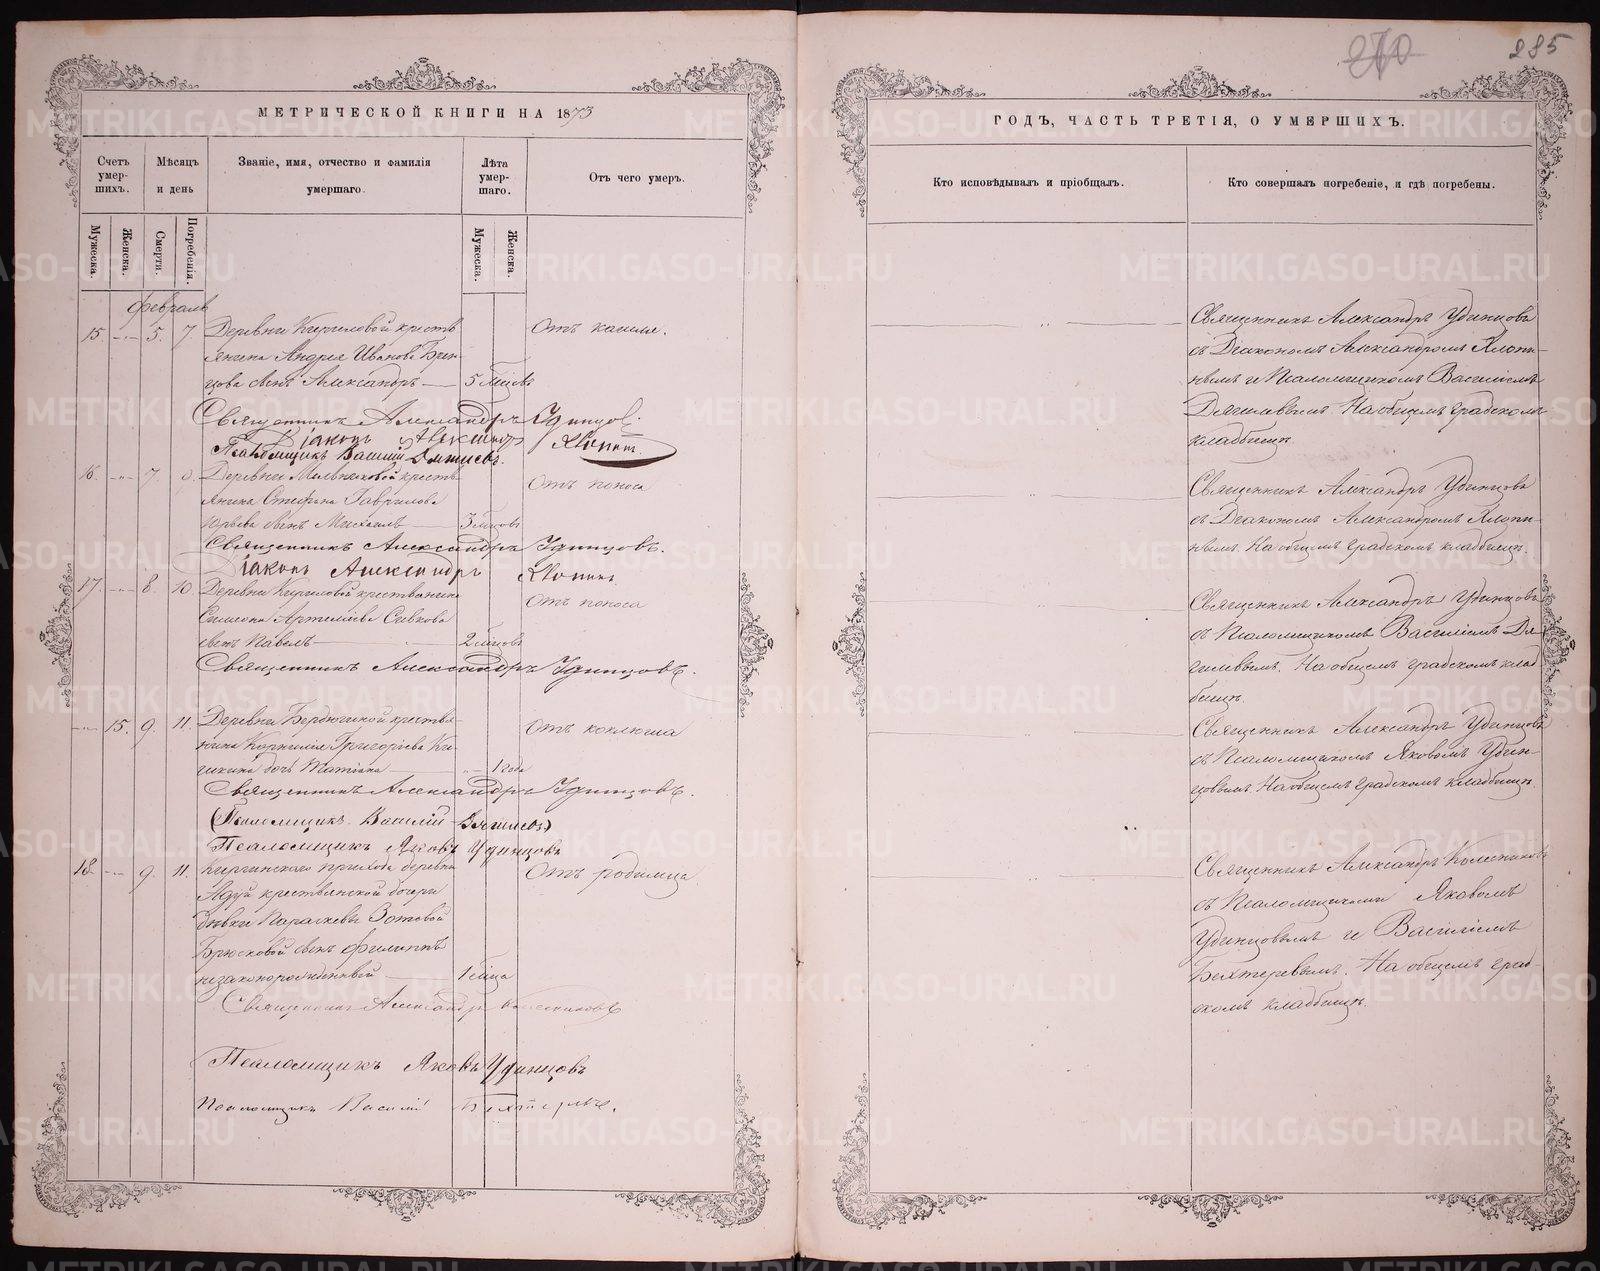 МЕТРИЧЕСКОЙ КНИГИ НА 1873
Счетъ умер-шихъ.
Мѣсяцъ и день
Званіе, имя, отчество и фамилія умершаго.
Лѣта умер-шаго.
Отъ чего умеръ.
Мужеска.
Женска.
Смерти.
Погребенія.
Мужеска.
Женска.
февраль
15. 5. 7. Деревни Кыргиловой кресть
янина Андрея Иванова
сынъ Александръ 5 мѣсяцъ
Отъ кашля.
Священникъ Александръ Удинцов.
Діаконъ Александръ Хлопин.
Псаломщикъ Василий
16. 7. 9. Деревни кресть
янина Стефана Гаврилова
Юрьева сынъ Михаилъ 3 мѣсяцъ
Отъ поноса
Священникъ Александръ Удинцовъ.
Діаконъ Александръ Хлопинъ.
17. 8. 10. Деревни крестьянина
Симеона Артеміева Сивкова
сынъ Павелъ 2 мѣсяцъ
Отъ поноса
Священникъ Александръ Удинцовъ.
15. 9. 11. Деревни Бердюгиной крестья-
нина Корнилія Григоріева
дочь 1 года
Отъ коклюша
Священникъ Александръ Удинцовъ.
Псаломщикъ Василій
Псаломщикъ Яковъ Удинцовъ
18. 9. 11. Киргинскаго прихода деревни
крестьянской дочери
дѣвки Параскевы Зотовой
Брюсковой сынъ Филиппъ
незаконорожденный 1 мѣсяца
Отъ родимца.
Священникъ Александръ Колесниковъ
Псаломщикъ Яковъ Удинцовъ
Псаломщикъ Василій
270
285
ГОДЪ, ЧАСТЬ ТРЕТІЯ, О УМЕРШИХЪ.
Кто исповѣдывалъ и пріобщалъ.
Кто совершалъ погребеніе, и гдѣ погребены.
Священникъ Александръ Удинцовъ
съ Діакономъ Александромъ Хлопи-
нымъ и Псаломщикомъ Василіемъ
Дягилевымъ. На общемъ градскомъ
кладбищѣ.
Священникъ Александръ Удинцовъ
съ Діакономъ Александромъ Хлопи-
нымъ. На общемъ градскомъ кладбищѣ.
Священникъ Александръ Удинцовъ
съ Псаломщикомъ Василіемъ Дя-
гилевымъ. На общемъ градскомъ клад
бищѣ.
Священникъ Александръ Удинцовъ
съ Псаломщикомъ Яковомъ Удин-
цовымъ. На общемъ градскомъ кладбищѣ.
Священникъ Александръ Колесниковъ
съ Псаломщиками Яковомъ
Удинцовымъ и Василіемъ
Бехтеревымъ. На общемъ град-
скомъ кладбищѣ.
METRIKI.GASO-URAL.RU